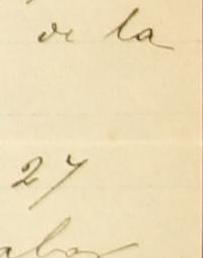 de la
27